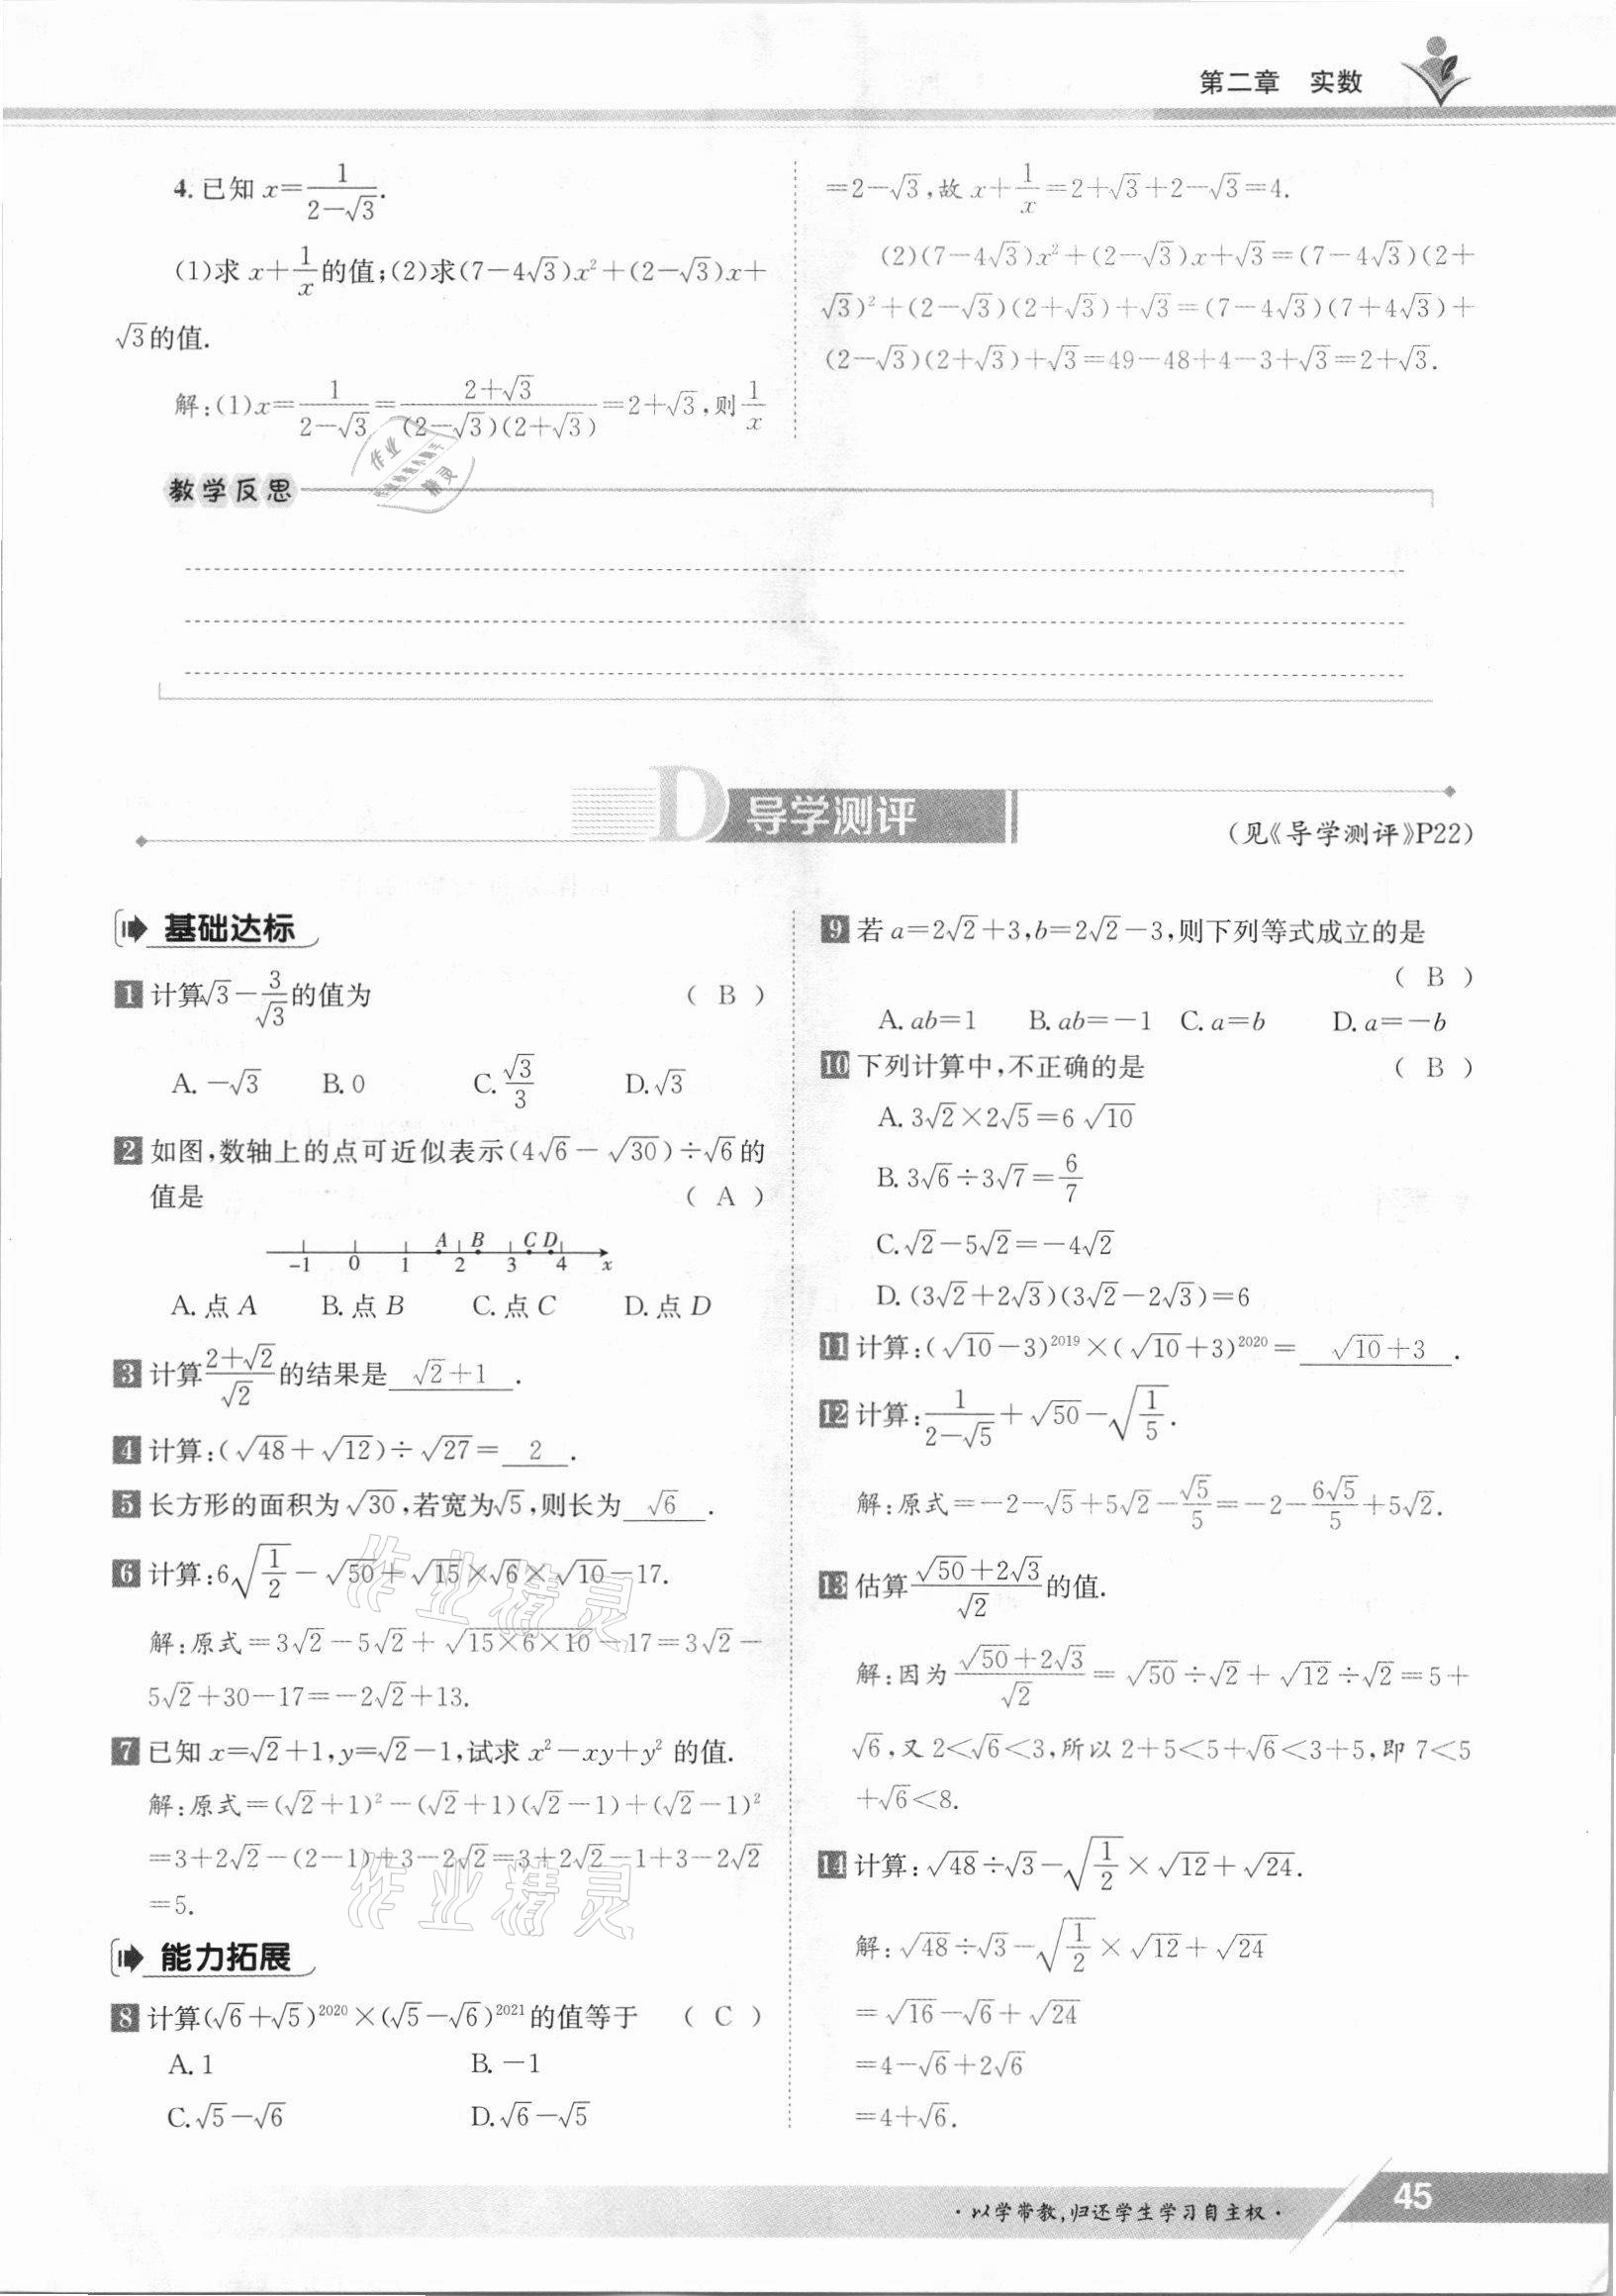 第二章 实数
4. 已知 x=1/(2-√3).
(1)求 x+1/x 的值;(2)求(7-4√3)x²+(2-√3)x+
√3的值.
解:(1)x=1/(2-√3)=(2+√3)/((2-√3)(2+√3))=2+√3,则1/x
=2-√3,故 x+1/x=2+√3+2-√3=4.
(2)(7-4√3)x²+(2-√3)x+√3=(7-4√3)(2+
√3)²+(2-√3)(2+√3)+√3=(7-4√3)(7+4√3)+
(2-√3)(2+√3)+√3=49-48+4-3+√3=2+√3.
教学反思
D 导学测评
(见《导学测评》P22)
基础达标
1 计算√3-3/√3的值为 ( B )
A. -√3 B. 0 C. √3/3 D. √3
2 如图,数轴上的点可近似表示(4√6-√30)÷√6的
值是 ( A )
A B C D
-1 0 1 2 3 4 x
A. 点 A B. 点 B C. 点 C D. 点 D
3 计算(2+√2)/√2的结果是 √2+1 .
4 计算:(√48+√12)÷√27= 2 .
5 长方形的面积为√30,若宽为√5,则长为 √6 .
6 计算:6√(1/2)-√50+√15×√6×√10-17.
解:原式=3√2-5√2+√(15×6×10)-17=3√2-
5√2+30-17=-2√2+13.
7 已知 x=√2+1,y=√2-1,试求 x²-xy+y² 的值.
解:原式=(√2+1)²-(√2+1)(√2-1)+(√2-1)²
=3+2√2-(2-1)+3-2√2=3+2√2-1+3-2√2
=5.
能力拓展
8 计算(√6+√5)²⁰²⁰×(√5-√6)²⁰²¹的值等于 ( C )
A. 1 B. -1
C. √5-√6 D. √6-√5
9 若 a=2√2+3,b=2√2-3,则下列等式成立的是
( B )
A. ab=1 B. ab=-1 C. a=b D. a=-b
10 下列计算中,不正确的是 ( B )
A. 3√2×2√5=6√10
B. 3√6÷3√7=6/7
C. √2-5√2=-4√2
D. (3√2+2√3)(3√2-2√3)=6
11 计算:(√10-3)²⁰¹⁹×(√10+3)²⁰²⁰= √10+3 .
12 计算:1/(2-√5)+√50-√(1/5).
解:原式=-2-√5+5√2-√5/5=-2-6√5/5+5√2.
13 估算(√50+2√3)/√2的值.
解:因为(√50+2√3)/√2=√50÷√2+√12÷√2=5+
√6,又 2<√6<3,所以 2+5<5+√6<3+5,即 7<5
+√6<8.
14 计算:√48÷√3-√(1/2)×√12+√24.
解:√48÷√3-√(1/2)×√12+√24
=√16-√6+√24
=4-√6+2√6
=4+√6.
·以学带教,归还学生学习自主权·
45
作业精灵
作业精灵
作业
精灵